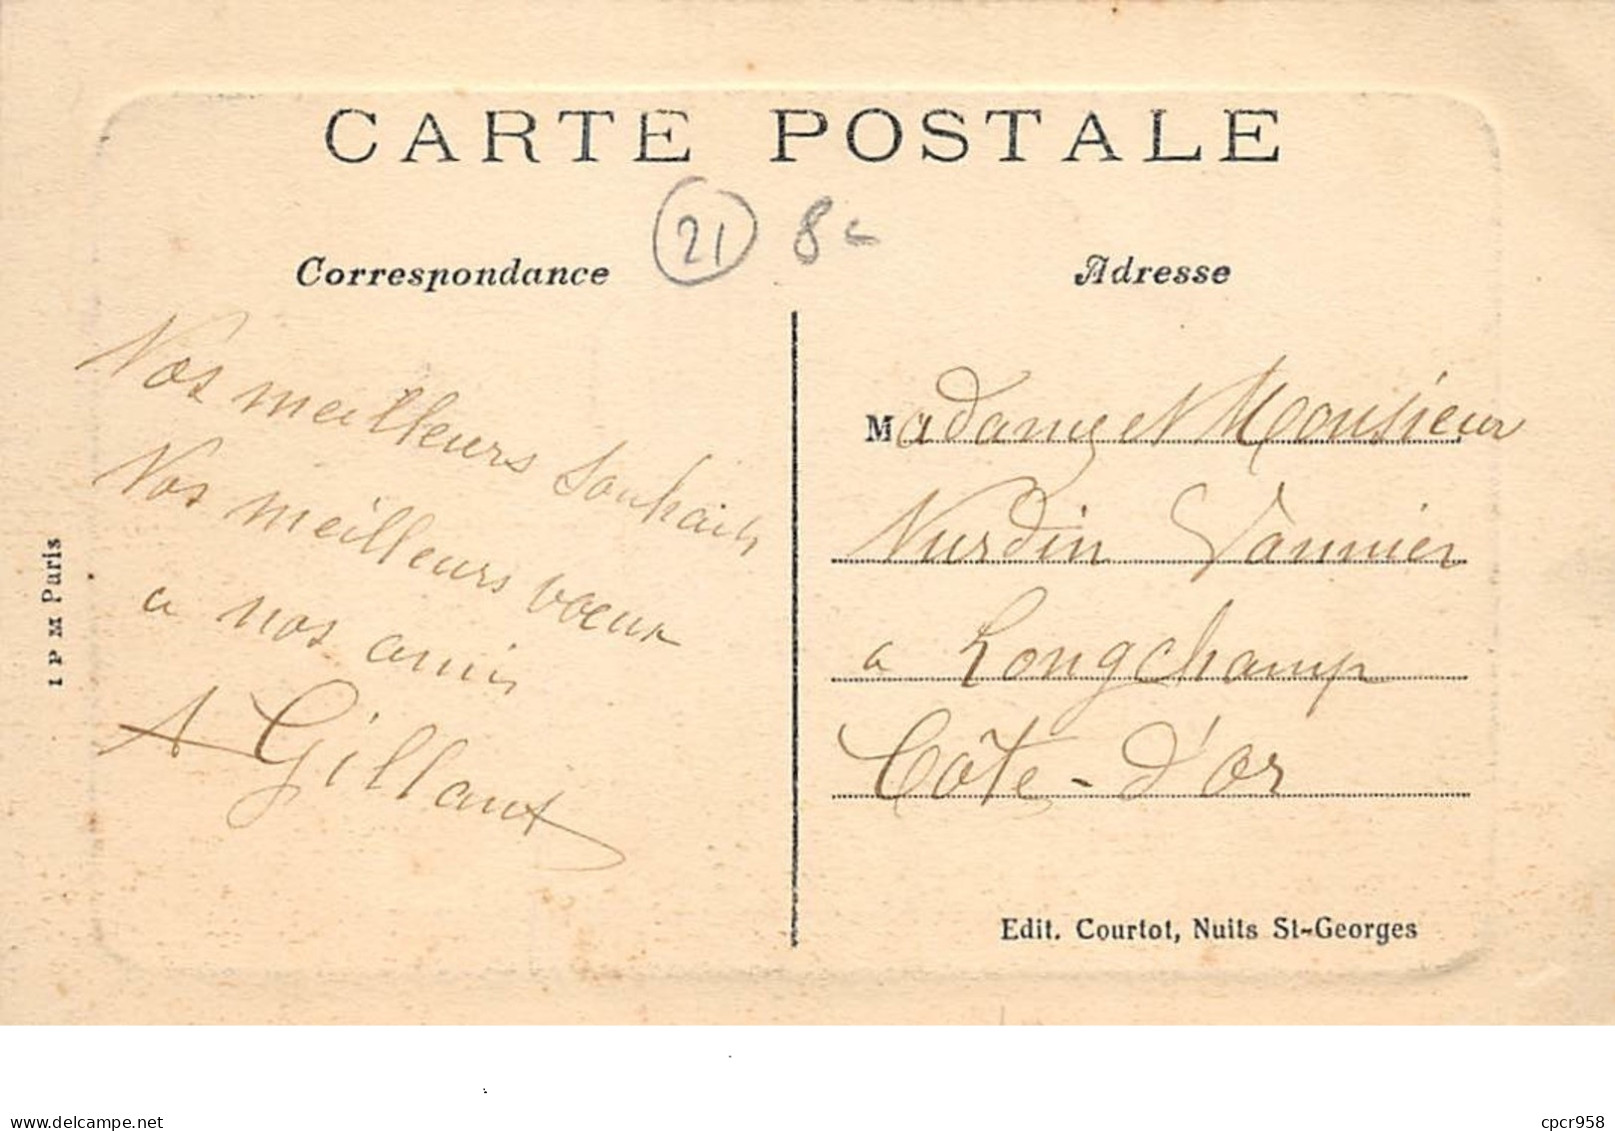 CARTE POSTALE
21 8
Correspondance
Adresse
Nos meilleurs souhaits
Nos meilleurs vœux
a nos amis
A Gillant
Madame et Monsieur
Nurdin Vannier
a Longchamp
Côte-d'or
Edit. Courtot, Nuits St-Georges
I P M Paris
www.delcampe.net
cpcr958